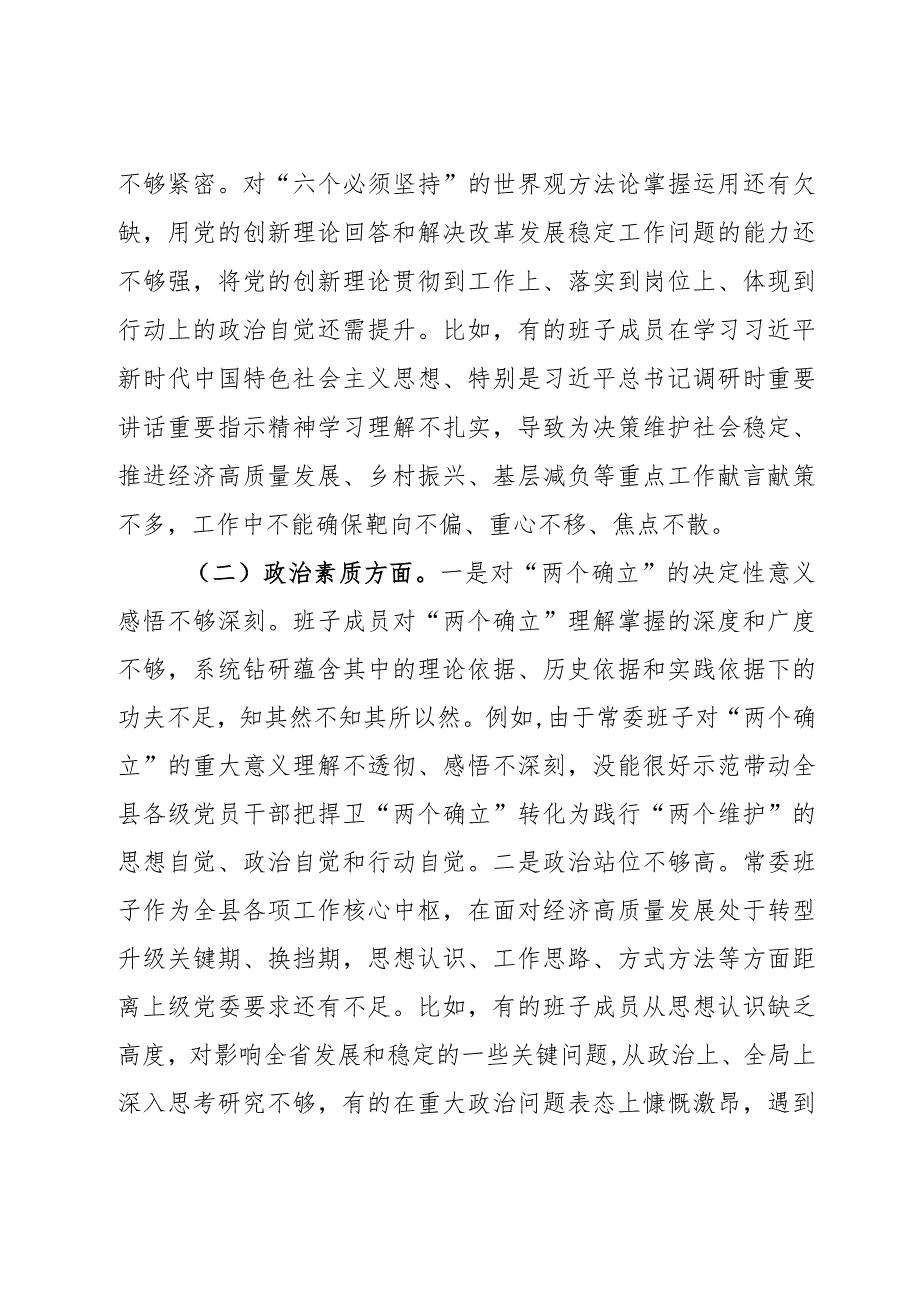 不够紧密。对“六个必须坚持”的世界观方法论掌握运用还有欠
缺，用党的创新理论回答和解决改革发展稳定工作问题的能力还
不够强，将党的创新理论贯彻到工作上、落实到岗位上、体现到
行动上的政治自觉还需提升。比如，有的班子成员在学习习近平
新时代中国特色社会主义思想、特别是习近平总书记调研时重要
讲话重要指示精神学习理解不扎实，导致为决策维护社会稳定、
推进经济高质量发展、乡村振兴、基层减负等重点工作献言献策
不多，工作中不能确保靶向不偏、重心不移、焦点不散。
（二）政治素质方面。一是对“两个确立”的决定性意义
感悟不够深刻。班子成员对“两个确立”理解掌握的深度和广度
不够，系统钻研蕴含其中的理论依据、历史依据和实践依据下的
功夫不足，知其然不知其所以然。例如,由于常委班子对“两个确
立”的重大意义理解不透彻、感悟不深刻，没能很好示范带动全
县各级党员干部把捍卫“两个确立”转化为践行“两个维护”的
思想自觉、政治自觉和行动自觉。二是政治站位不够高。常委班
子作为全县各项工作核心中枢，在面对经济高质量发展处于转型
升级关键期、换挡期，思想认识、工作思路、方式方法等方面距
离上级党委要求还有不足。比如，有的班子成员从思想认识缺乏
高度，对影响全省发展和稳定的一些关键问题,从政治上、全局上
深入思考研究不够，有的在重大政治问题表态上慷慨激昂，遇到